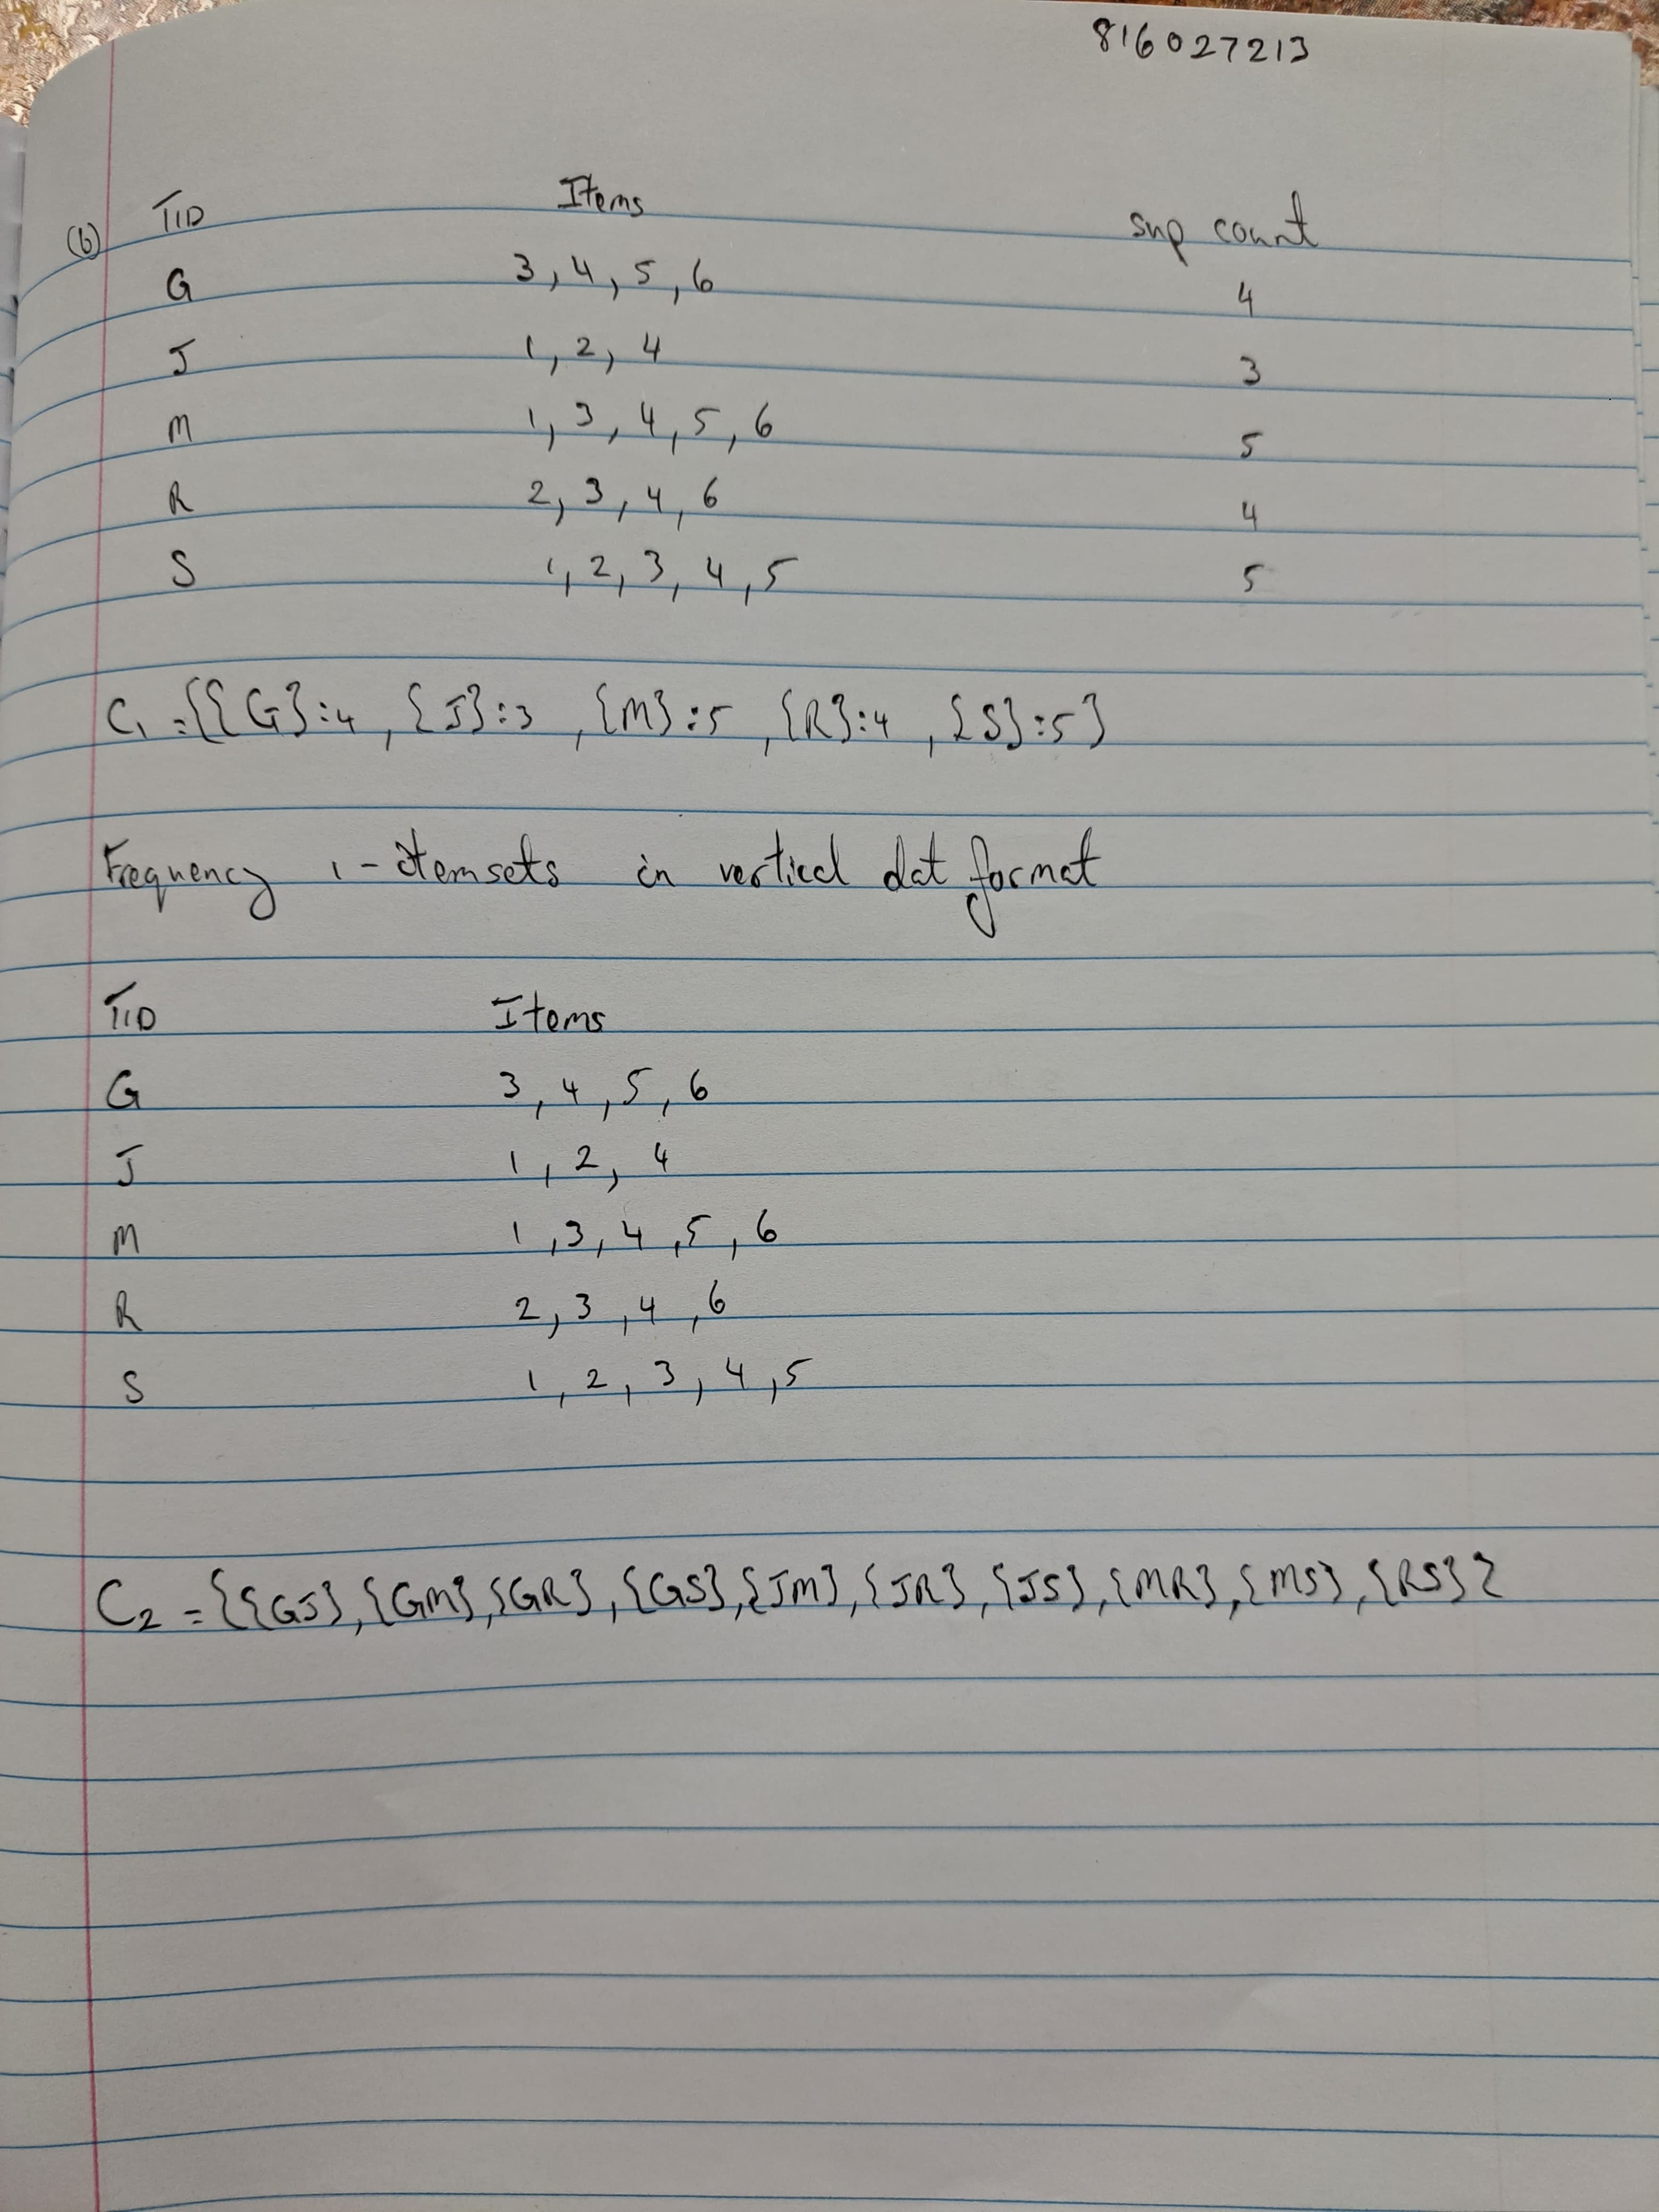 816027213
(b) TID Items sup count
G 3, 4, 5, 6 4
J 1, 2, 4 3
M 1, 3, 4, 5, 6 5
R 2, 3, 4, 6 4
S 1, 2, 3, 4, 5 5
C₁ = {{G}:4, {J}:3, {M}:5, {R}:4, {S}:5}
Frequency 1-itemsets in vertical dat format
TID Items
G 3, 4, 5, 6
J 1, 2, 4
M 1, 3, 4, 5, 6
R 2, 3, 4, 6
S 1, 2, 3, 4, 5
C₂ = {{GJ}, {GM}, {GR}, {GS}, {JM}, {JR}, {JS}, {MR}, {MS}, {RS}}